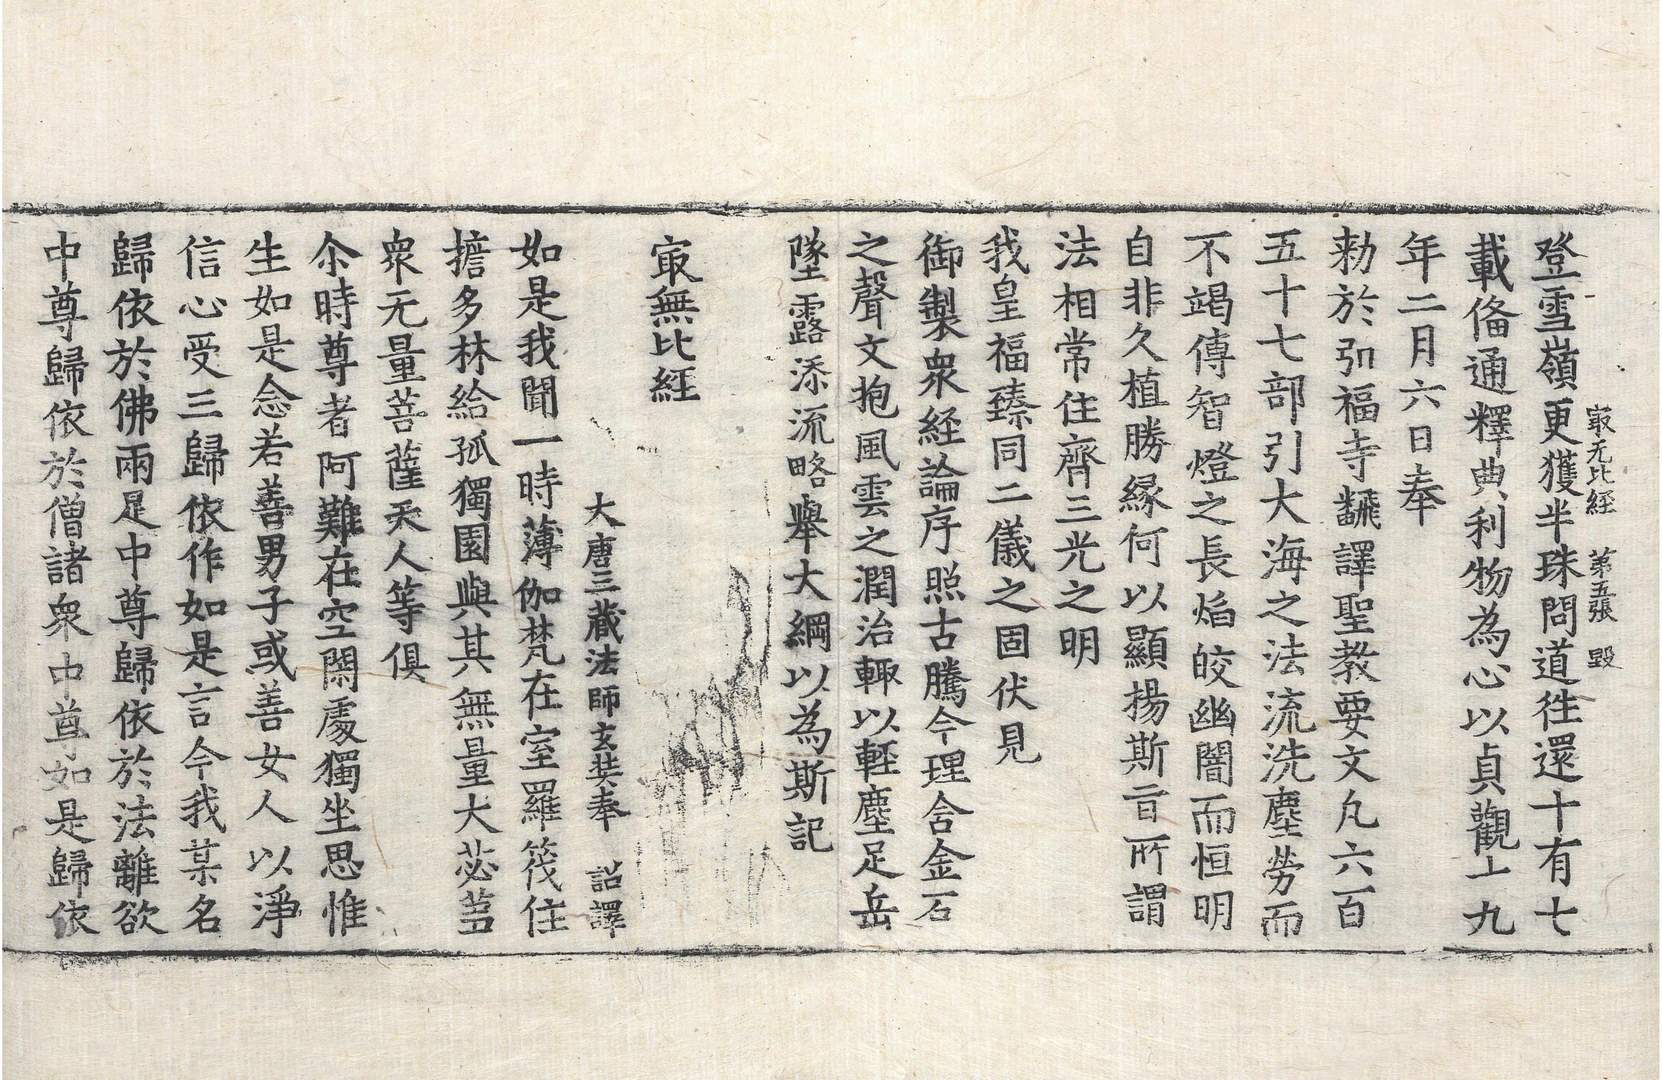 㝡无比経　第五張　毀
登雪嶺更獲半珠問道往還十有七
載俻通釋典利物為心以貞觀十九
年二月六日奉
勅於弘福寺飜譯聖教要文凡六百
五十七部引大海之法流洗塵勞而
不竭傳智燈之長焰皎幽闇而恒明
自非久植勝縁何以顯揚斯旨所謂
法相常住齊三光之明
我皇福臻同二儀之固伏見
御製衆経論序照古騰今理含金石
之聲文抱風雲之潤治輙以輕塵足岳
墜露添流略舉大綱以為斯記
㝡無比経
大唐三藏法師玄奘奉　詔譯
如是我聞一時薄伽梵在室羅筏住
擔多林給孤獨園與其無量大苾芻
衆无量菩薩天人等俱
尒時尊者阿難在空閑處獨坐思惟
生如是念若善男子或善女人以淨
信心受三歸依作如是言今我某名
歸依於佛兩足中尊歸依於法離欲
中尊歸依於僧諸衆中尊如是歸依